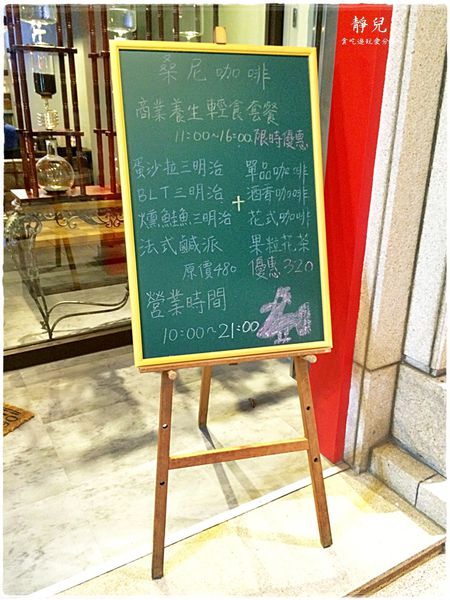 靜兒
貪吃遊玩愛分
桑尼咖啡
商業養生輕食套餐
11:00~16:00 限時優惠
蛋沙拉三明治 單品咖啡
BLT三明治 + 酒香咖啡
燻鮭魚三明治 花式咖啡
法式鹹派 果粒花茶
原價480 優惠320
營業時間
10:00~21:00